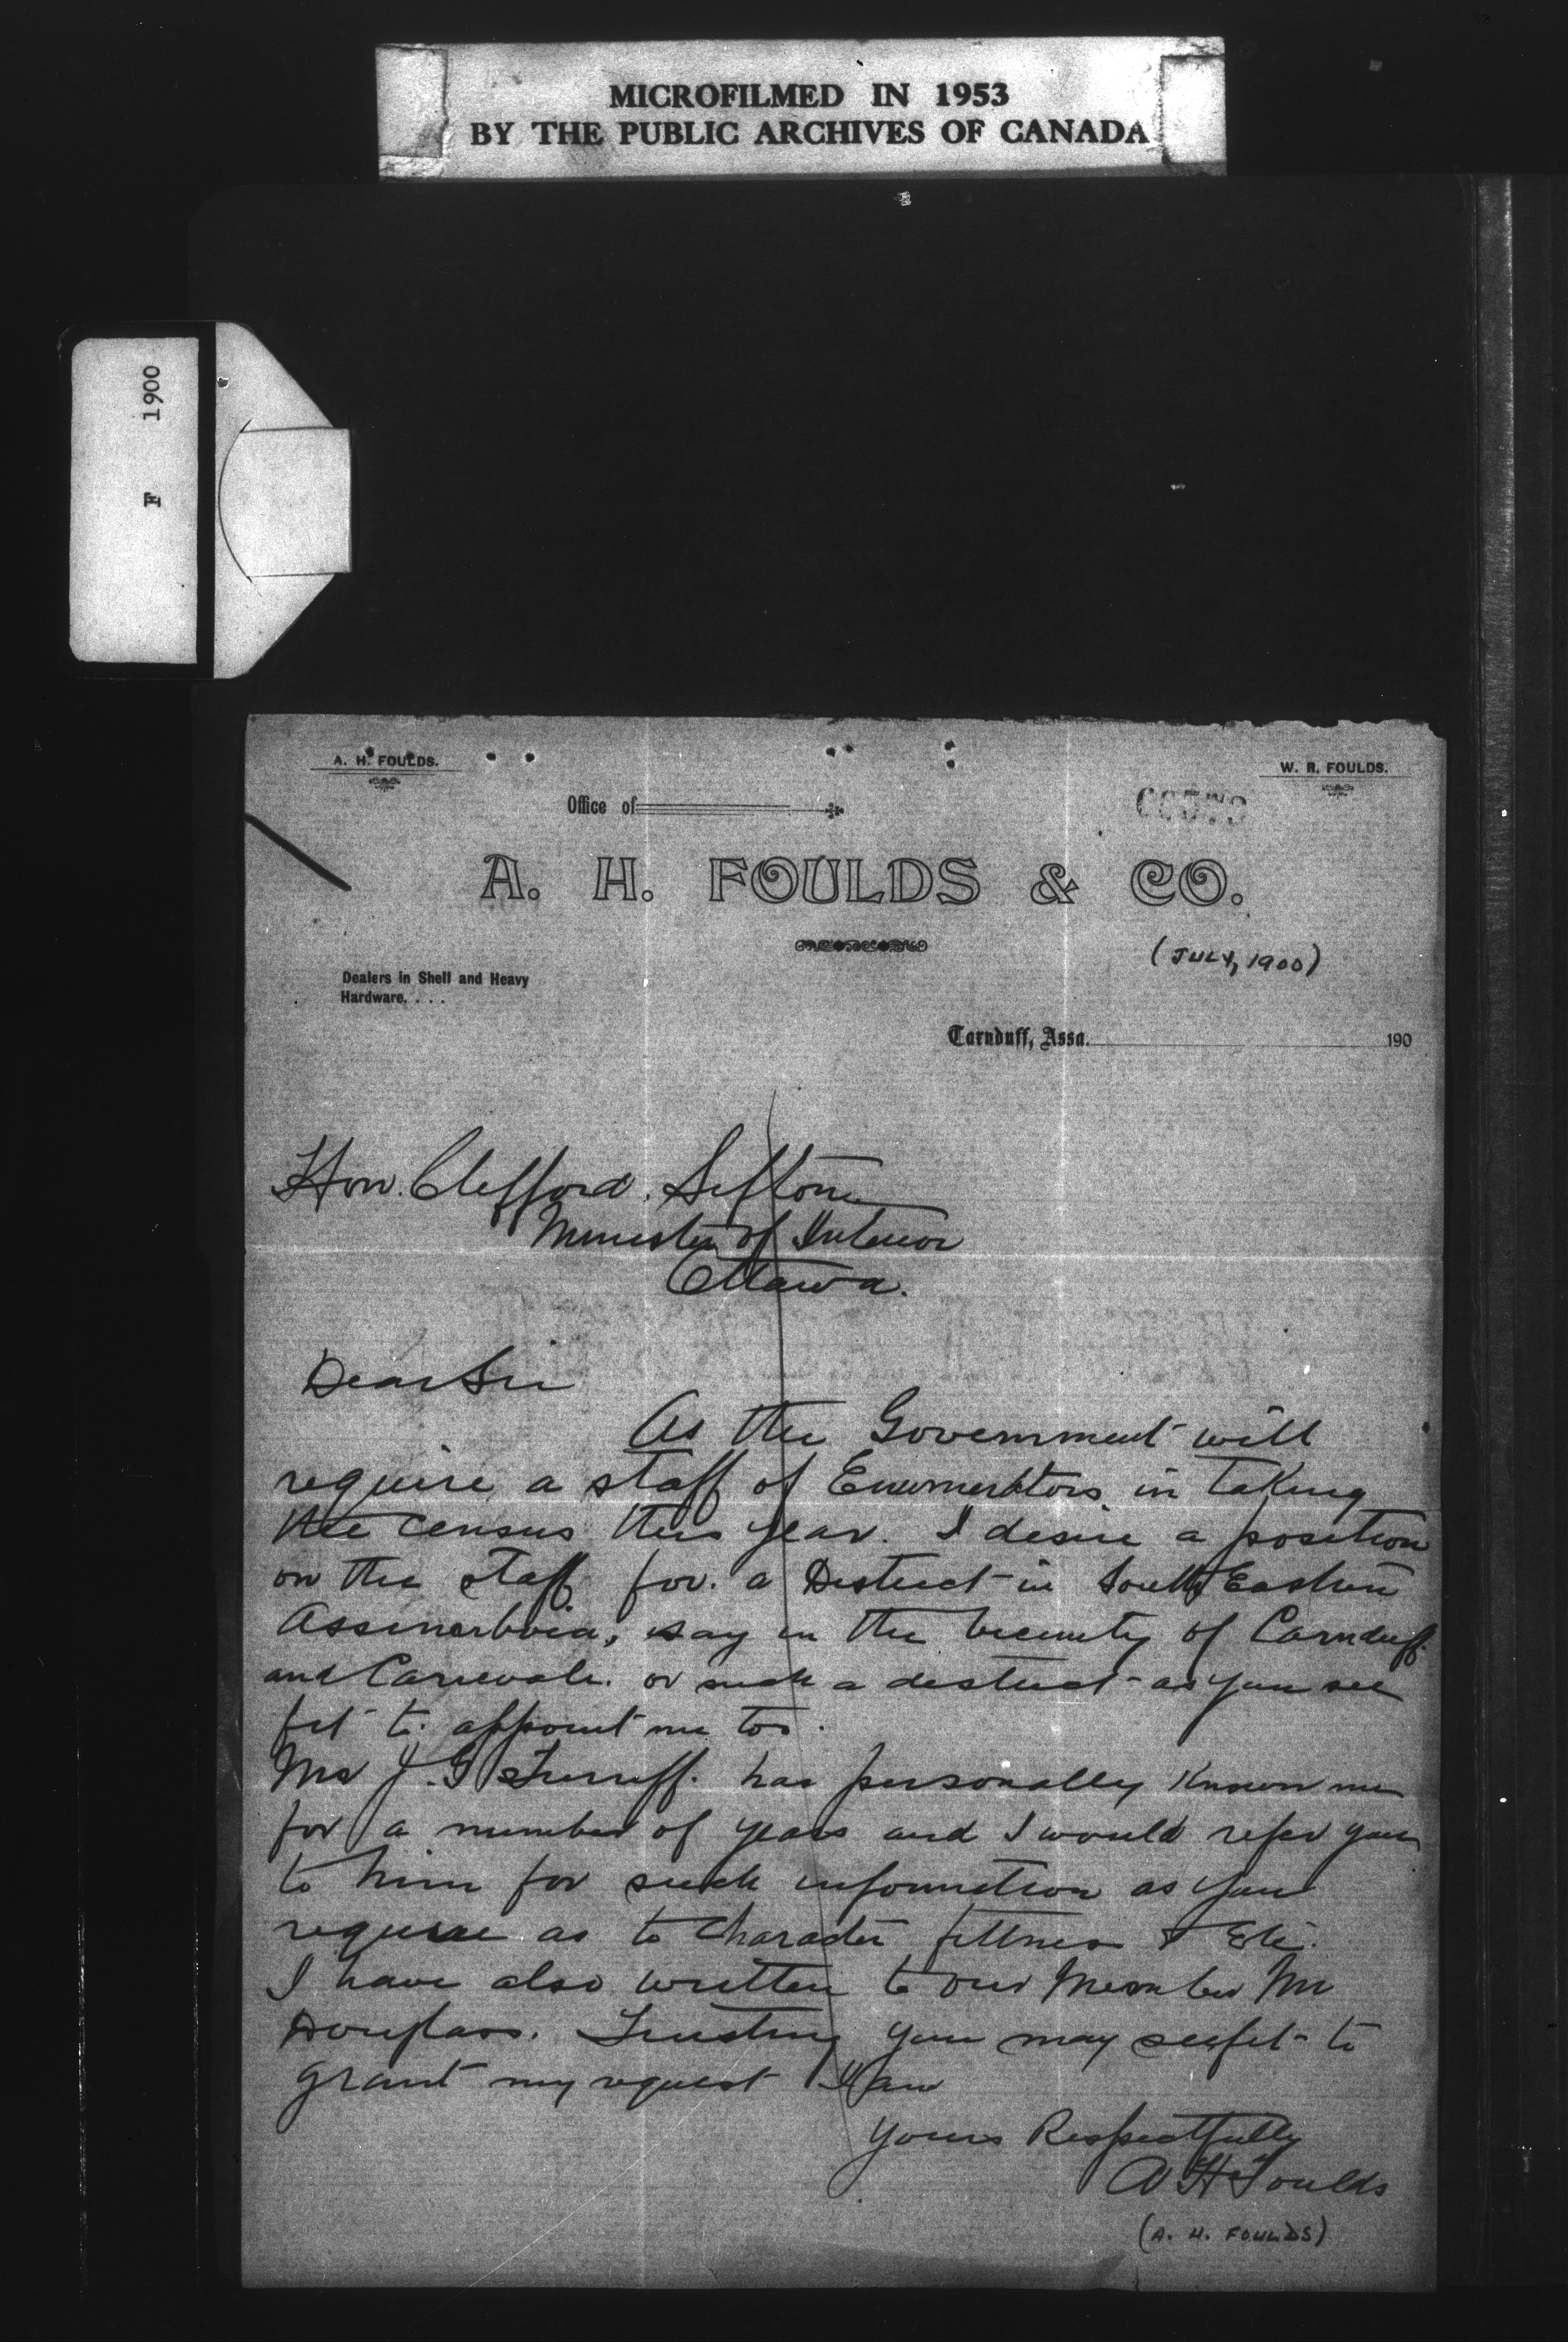 MICROFILMED IN 1953
BY THE PUBLIC ARCHIVES OF CANADA
F 1900
A. H. FOULDS.
W. R. FOULDS.
Office of
A. H. FOULDS & CO.
(JULY, 1900)
Dealers in Shelf and Heavy
Hardware. . . .
Carnduff, Assa. 190
Hon. Clifford. Sifton
Minister of Interior
Ottawa.
Dear Sir
As the Government will
require a staff of Enumerators in taking
the census this year. I desire a position
on the staff for. a District in South Eastern
Assinaboia, say in the vicinity of Carnduff.
and Carievale. or such a district as you see
fit to appoint me too.
Mr J. G Turriff. has personally known me
for a number of years and I would refer you
to him for such information as you
require as to character fittness & Etc.
I have also written to our Member Mr
Douglass. Trusting you may seefit to
grant my request I am
Yours Respectfully
A H Foulds
(A. H. FOULDS)